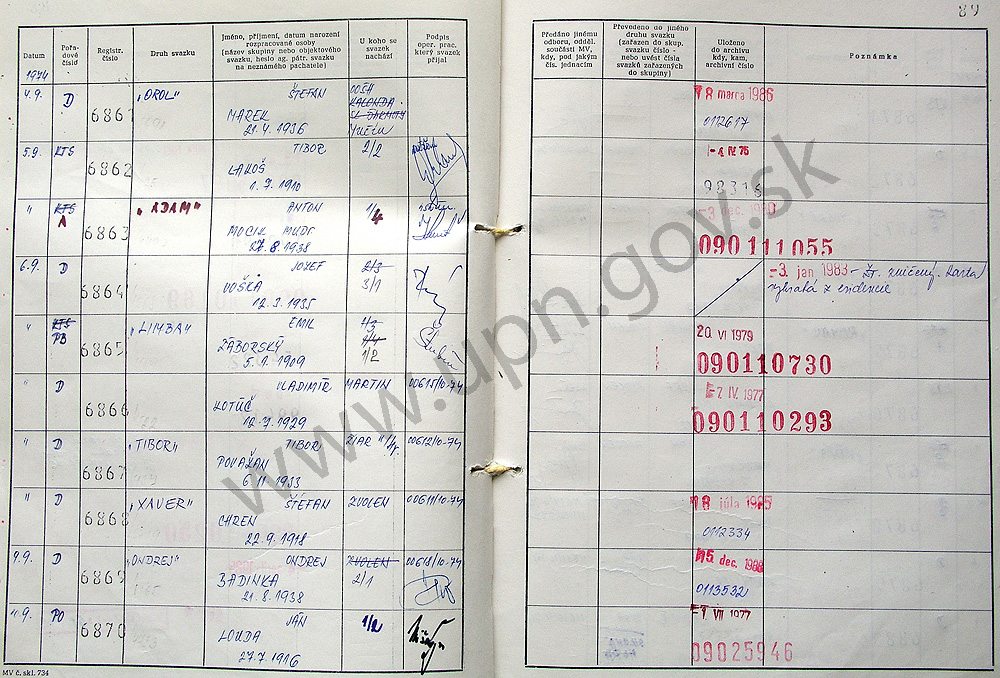 89
Datum
Pořadové číslo
Registr. číslo
Druh svazku
Jméno, příjmení, datum narození
rozpracované osoby
(název skupiny nebo objektového
svazku, heslo ag. pátr. svazku
na neznámého pachatele)
U koho se
svazek
nachází
Podpis
oper. prac.
který svazek
přijal
Předáno jinému
odboru, odděl.
součásti MV,
kdy, pod jakým
čís. jednacím
Převedeno do jiného
druhu svazku
(zařazen do skup.
svazku číslo -
nebo uvést čísla
svazků zařazených
do skupiny)
Uloženo
do archivu
kdy, kam,
archivní číslo
Poznámka
1974
4.9. D 6861 „OROL" ŠTEFAN
MAREK
21.4.1936
18 marca 1986
0112617
5.9. KTS 6862 TIBOR 2/2
LAKOŠ
1.7.1910
-4 IV 75
98316
" KTS A 6863 „ADAM" ANTON 1/4
MOCIK MUDr
8.1938
-3 dec.
090111055
6.9. D 6864 JOZEF 2/3
VOŠKA 3/1
12.3.1935
-3. jan. 1983 - zničený. karta
vybratá z evidencie
" KTS PB 6865 „LIMBA" EMIL 1/3
ZÁBORSKÝ 1/4
5.1.1909 1/2
20 VI 1979
090110730
" D 6866 VLADIMÍR MARTIN 00615/10-74
KOTÚČ
12.7.1929
-7. IV. 1977
090110293
" D 6867 „TIBOR" TIBOR ŽIAR 00612/10-74
POVAŽAN
6.11.1933
" D 6868 „XAVER" ŠTEFAN ZVOLEN 00611/10-74
CHREN
22.9.1918
18 júla 1985
0112334
9.9. D 6869 „ONDREJ" ONDREJ ZVOLEN 00618/10-74
BADINKA 2/1
21.8.1938
15 dec. 1988
0113532
9. PO 6870 JÁN 1/2
LOUDA
27.7.1916
-7 VII 1977
09025946
MV č. skl. 734
www.upn.gov.sk